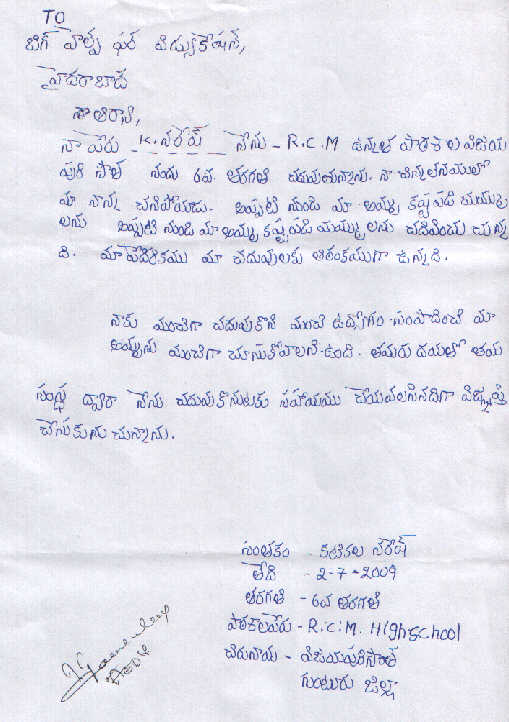 TO
బిగ్ హెల్ప్ ఫర్ ఎడ్యుకేషన్,
హైదరాబాద్
నా పేరు K. నరేష్ నేను - R.C.M ఉన్నత పాఠశాల విజయ
పురి సౌత్ నందు 6వ తరగతి చదువుచున్నాను. నా చిన్నతనములో
మా నాన్న చనిపోయాడు. అప్పటి నుండి మా అమ్మ కష్టపడి మమ్ము
లను అప్పటి నుండి మా అమ్మ కష్టపడి మమ్ములను చదివించు చున్న
ది. మా పేదరికము మా చదువులకు ఆటంకముగా ఉన్నది.
నాకు మంచిగా చదువుకొని మంచి ఉద్యోగం సంపాదించి మా
అమ్మను మంచిగా చూసుకోవాలని ఉంది. తమరు దయతో తమ
సంస్థ ద్వారా నేను చదువుకొనుటకు సహాయము చేయవలసినదిగా విజ్ఞప్తి
చేసుకుంటున్నాను.
సంతకం - నరేష్
తేది - 2-7-2009
తరగతి - 6వ తరగతి
పాఠశాలపేరు - R.C.M. High school
చిరునామ - విజయపురిసౌత్
గుంటూరు జిల్లా